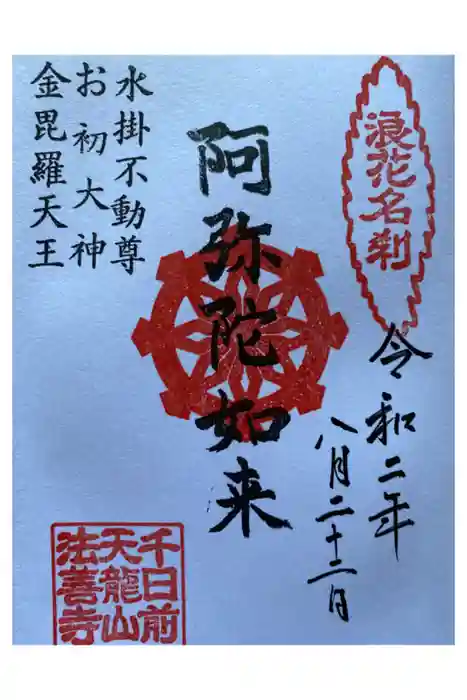 浪花名刹
令和二年
八月二十二日
阿弥陀如来
水掛不動尊
お初大神
金毘羅天王
千日前
天龍山
法善寺